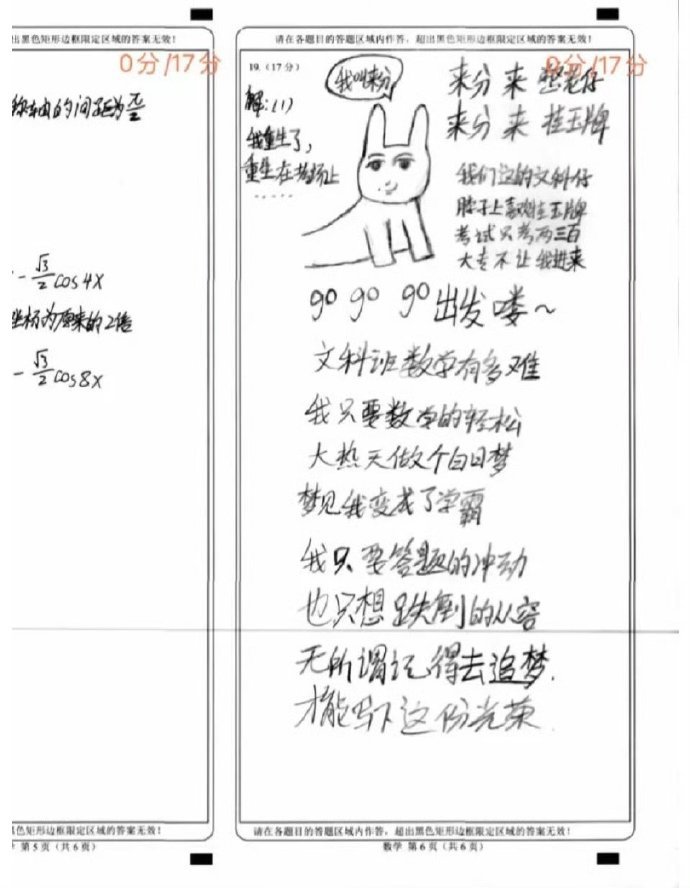 出黑色矩形边框限定区域的答案无效！
0分/17分
称轴的间距为π/2
-√3/2 cos4x
坐标为原来的2倍
-√3/2 cos8x
色矩形边框限定区域的答案无效！
第5页（共6页）
请在各题目的答题区域内作答，超出黑色矩形边框限定区域的答案无效！
0分/17分
19.（17分）
解：(1)
我重生了，
重生在考场上
......
我叫来分
来分 来 仔
来分 来 挂玉牌
我们这的文科仔
脖子上喜欢挂玉牌
考试只考两三百
大专不让我进来
go go go出发喽~
文科班数学有多难
我只要数学的轻松
大热天做个白日梦
梦见我变成了学霸
我只要答题的冲动
也只想跌倒的从容
无所谓记得去追梦.
才能写下这份光荣
请在各题目的答题区域内作答，超出黑色矩形边框限定区域的答案无效！
数学 第6页（共6页）